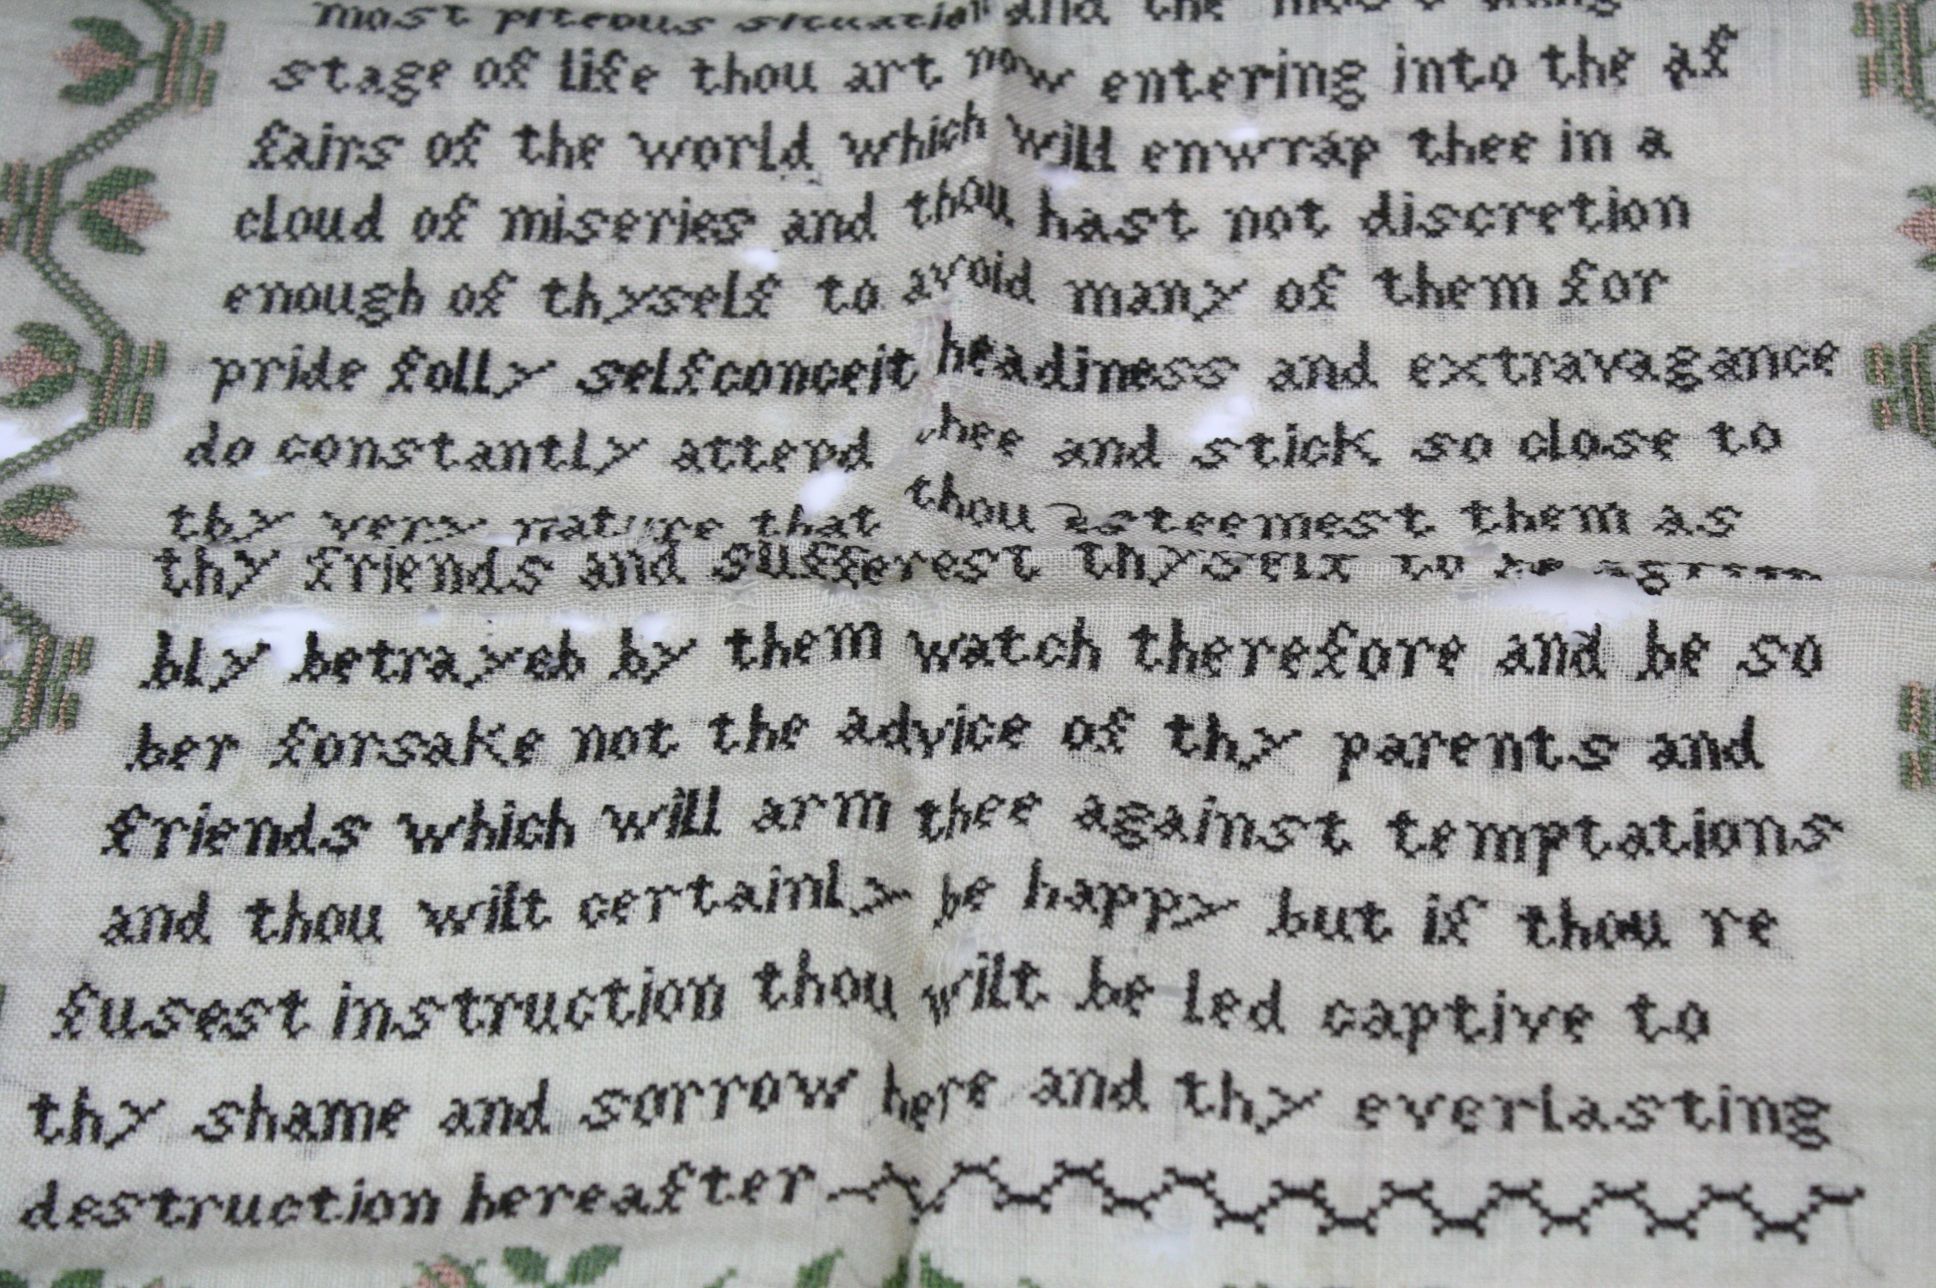 most piteous situation and the most
stage of life thou art now entering into the af
fairs of the world which will enwrap thee in a
cloud of miseries and thou hast not discretion
enough of thyself to avoid many of them for
pride folly selfconceit headiness and extravagance
do constantly attend thee and stick so close to
thy very nature that thou esteemest them as
thy friends and sufferest thyself to be
bly betrayeb by them watch therefore and be so
ber forsake not the advice of thy parents and
friends which will arm thee against temptations
and thou wilt certainly be happy but if thou re
fusest instruction thou wilt be led captive to
thy shame and sorrow here and thy everlasting
destruction hereafter